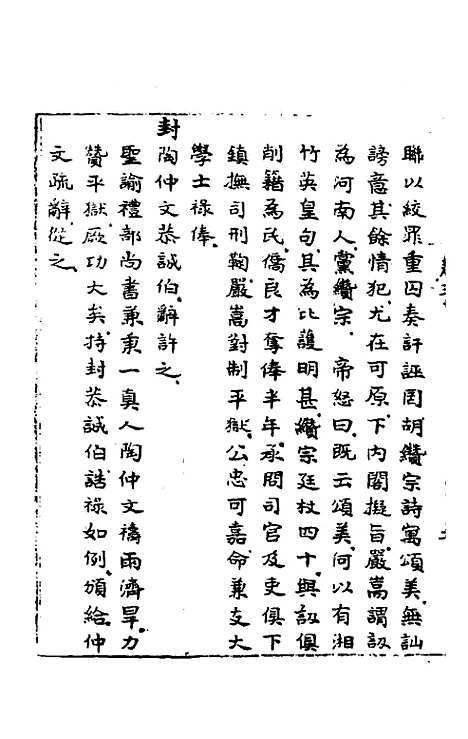 聯以絞罪重囚奏訐誣罔胡纘宗詩寓頌美無訕
謗意其餘情犯尤在可原下內閣擬旨嚴嵩謂訒
為河南人黨纘宗　帝怒曰既云頌美何以有湘
竹英皇句其為比護明甚纘宗廷杖四十與訒俱
削籍為民儒良才奪俸半年承問司官及吏俱下
鎮撫司刑鞫嚴嵩對制平獄公忠可嘉命兼支大
學士祿俸
封陶仲文恭誠伯辭許之
聖諭禮部尚書兼秉一真人陶仲文禱雨濟旱力
贊平獄厥功大矣持封恭誠伯誥祿如例頒給仲
文疏辭從之